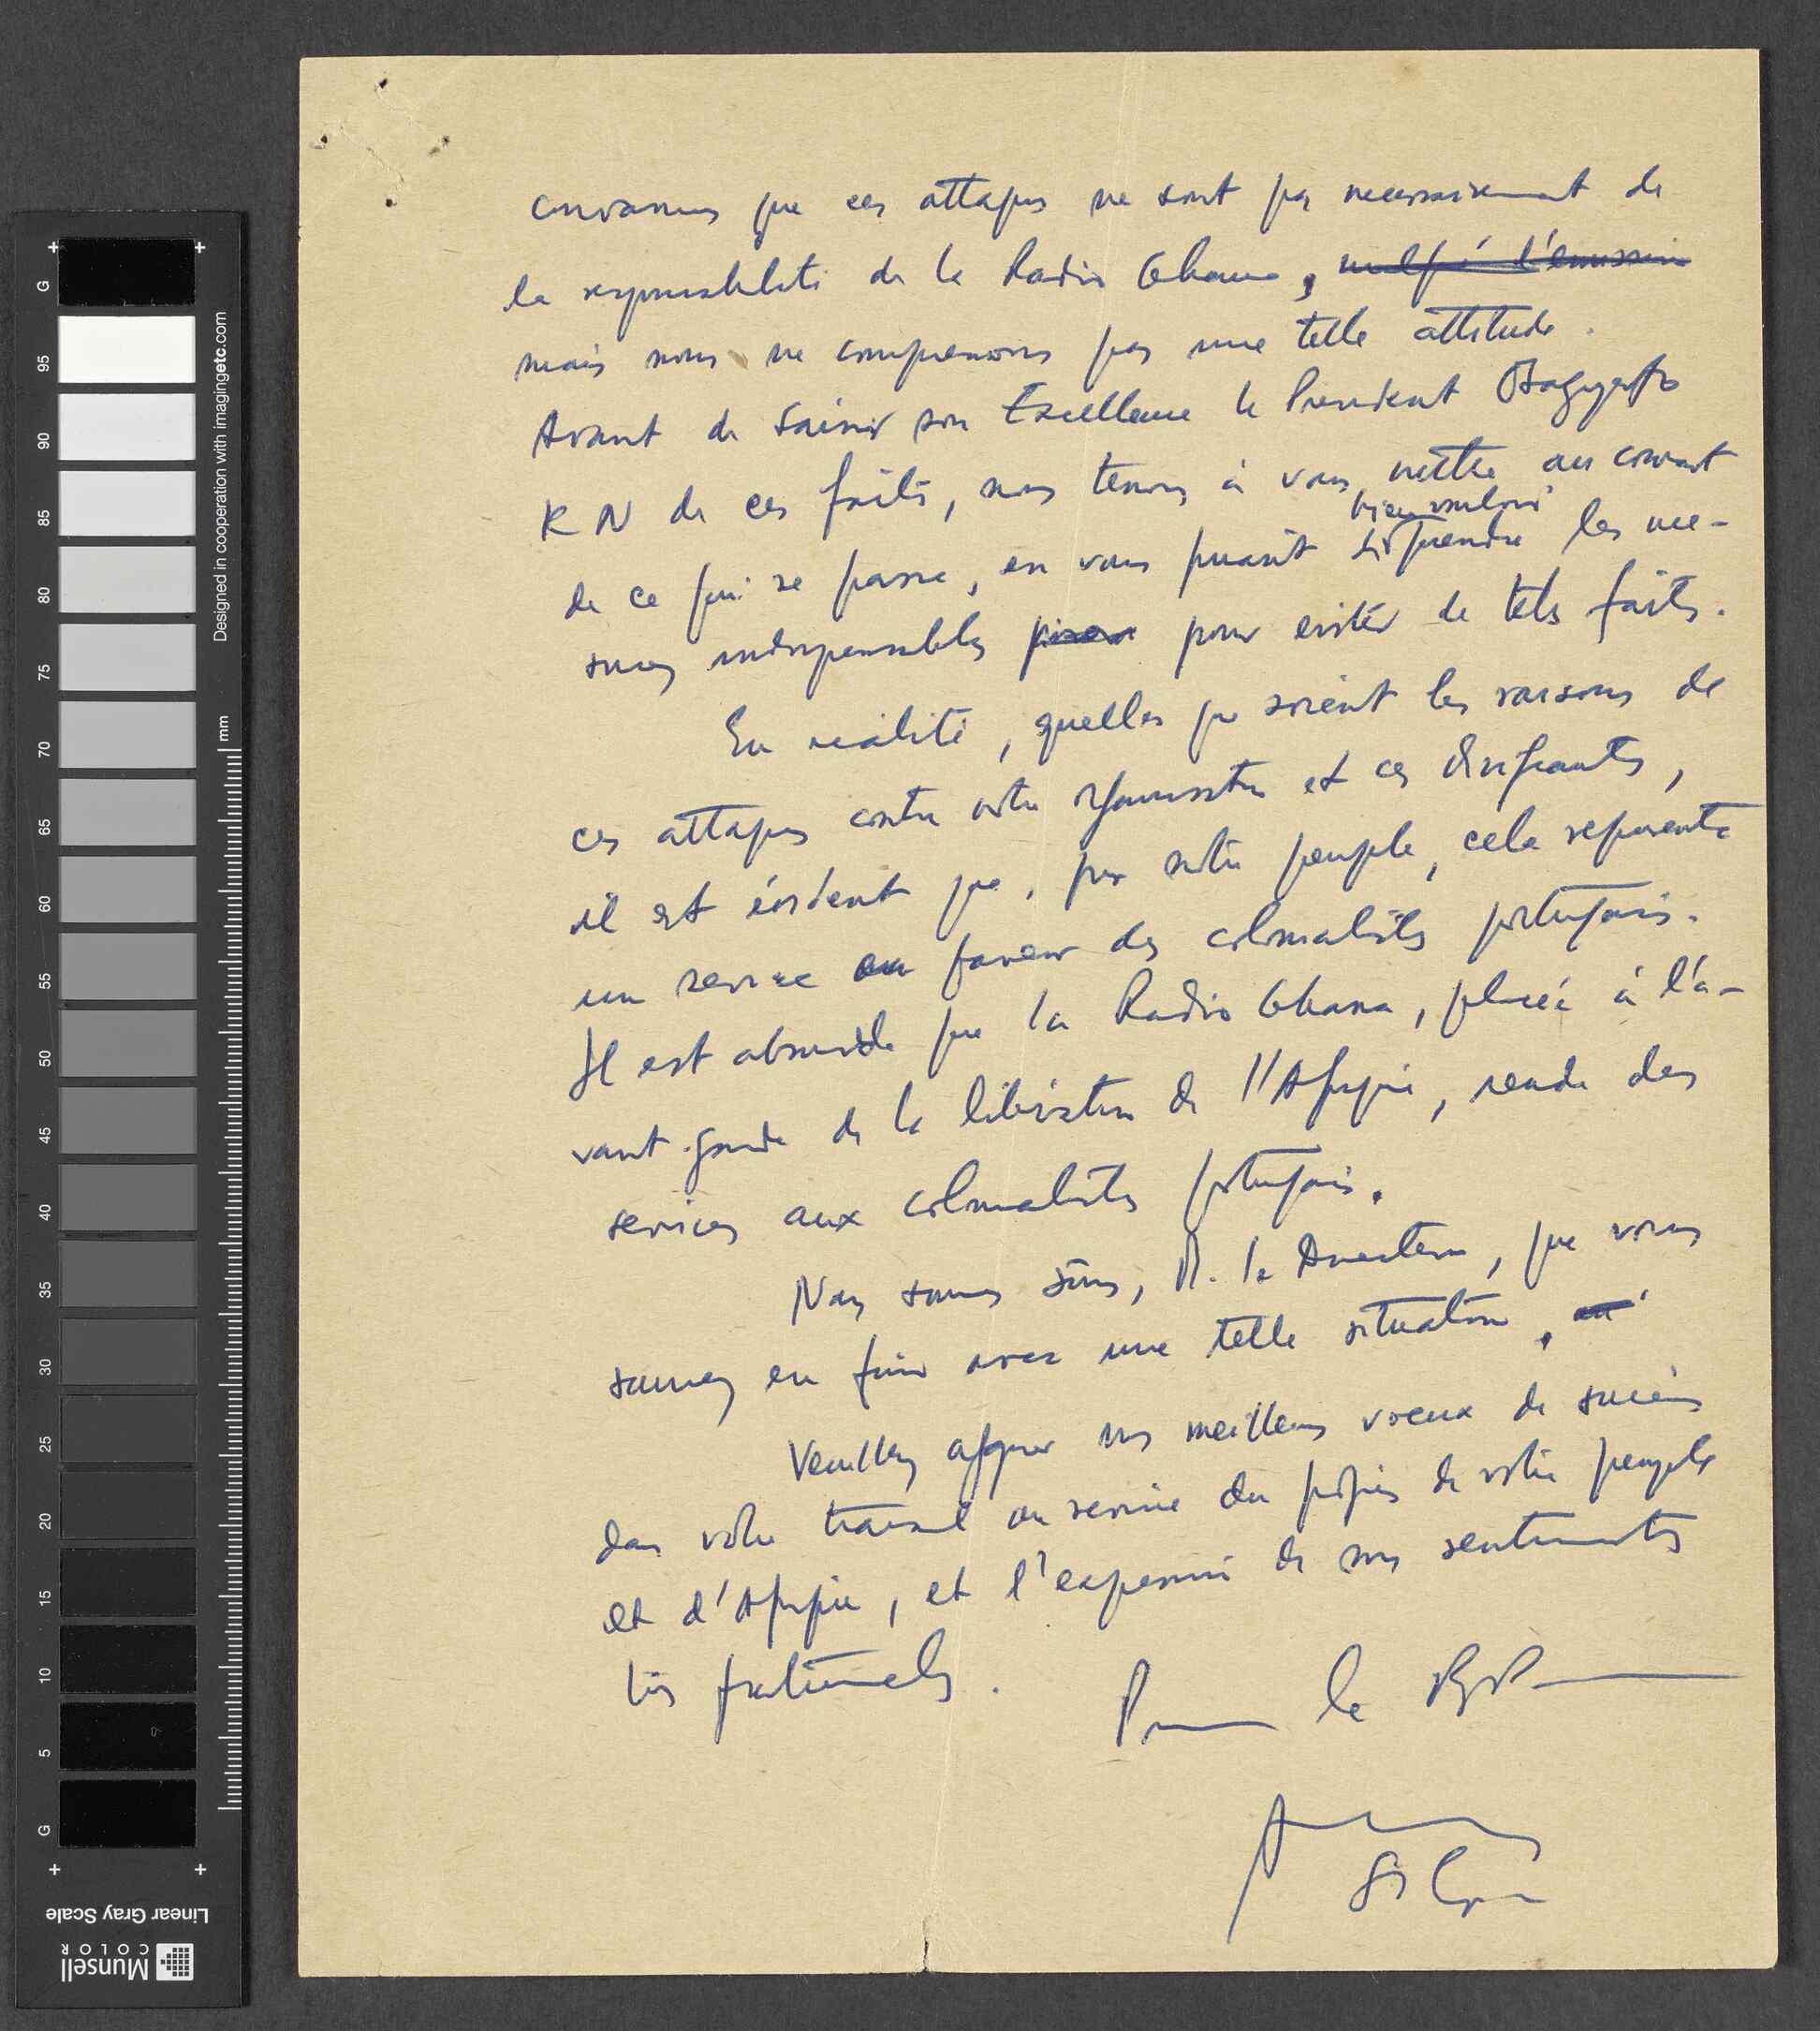 convaincus que ces attaques ne sont pas necessairement de
la responsabilité de la Radio Ghana, malgré l'emission
mais nous ne comprenons pas une telle attitude.
Avant de saisir son Excellence le President Osagyefo
K N de ces faits, nous tenons à vous mettre au courant
bien vouloir
de ce qui se passe, en vous priant de prendre les me-
sures indispensables pour eviter de tels faits.
En réalité, quelles que soient les raisons de
ces attaques contre notre organisation et ces dirigeants,
il est évident que, pour notre peuple, cela represente
un service en faveur des colonialistes portugais.
Il est absurde que la Radio Ghana, placée à l'a-
vant-garde de la libération de l'Afrique, rende des
services aux colonialistes portugais.
Nous sommes sûrs, M. le Directeur, que vous
saurez en finir avec une telle situation.
Veuillez agréer nos meilleurs voeux de succès
dans votre travail au service du progrès de votre peuple
et d'Afrique, et l'expression de nos sentiments
très fraternels.
Pour le
Designed in cooperation with imagingetc.com
mm
G
95
90
85
80
75
70
65
60
55
50
45
40
35
30
25
20
15
10
5
G
Linear Gray Scale
Munsell
COLOR